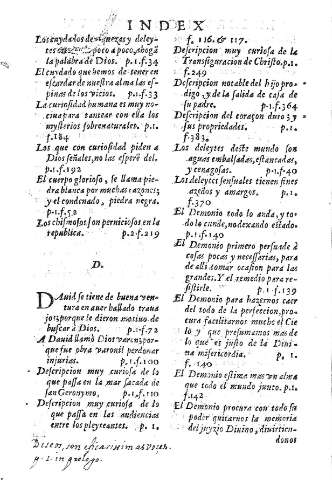 INDEX
Los cuydados de riquezas y deley-
tes poco a poco, ahogã
la palabra de Dios. p.1.f.34
El cuydado que hemos de tener en
escardar de nuestra alma las es-
pinas de los vicios. p.1.f.33
La curiosidad humana es muy no-
ciua para tantear con ella los
mysterios sobrenaturales. p.1.
f.184
Los que con curiosidad piden a
Dios señales, no las esperẽ del.
p.1.f.192
El cuerpo glorioso, se llama pie-
dra blanca por muchas razones;
y el condenado, piedra negra.
p.1.f.52
Los chismosos son perniciosos en la
republica. p.2.f.219
D.
Dauid se tiene de buena ven-
tura en auer hallado traua
jos; porque le dieron motiuo de
buscar à Dios. p.1-f.72
A Dauid llamò Dios varon; por-
que fue obra varonil perdonar
injurias. p.1.f.100
Descripcion muy curiosa de lo
que passa en la mar sacada de
san Geronymo. p.1.f.110
Descripcion muy curiosa de lo
que passa en las audiencias
entre los pleyteantes. p.1.
f. 116. & 117.
Descripcion muy curiosa de la
Transfiguracion de Christo. p.1.
f.249
Descripcion notable del hijo pro-
digo, y de la salida de casa de
su padre. p.1.f.364
Descripcion del coraçon duro; y
sus propiedades. p.1.
f.383.
Los deleytes deste mundo son
aguas embalsadas, estantadas,
y cenagosas. p.1.f.40
Los deleytes sensuales tienen fines
azedos y amargos. p.1.
f.370
El Demonio todo lo anda, y to-
do lo cunde, no dexando estado.
p.1.f.140
El Demonio primero persuade à
cosas pocas y necessarias, para
de alli tomar ocasion para las
grandes. Y el remedio para re-
sistirle. p.1.f.139
El Demonio para hazernos caer
del todo de la perfeccion, pro-
cura facilitarnos mucho el Cie
lo y que presumamos mas de
lo que es justo de la Diui-
na misericordia. p.1.
f.140
El Demonio estima mas vn alma
que todo el mundo junto. p.1.
f.142
El Demonio procura con todo su
poder quitarnos la memoria
del juyzio Diuino, diuirtien-
donos